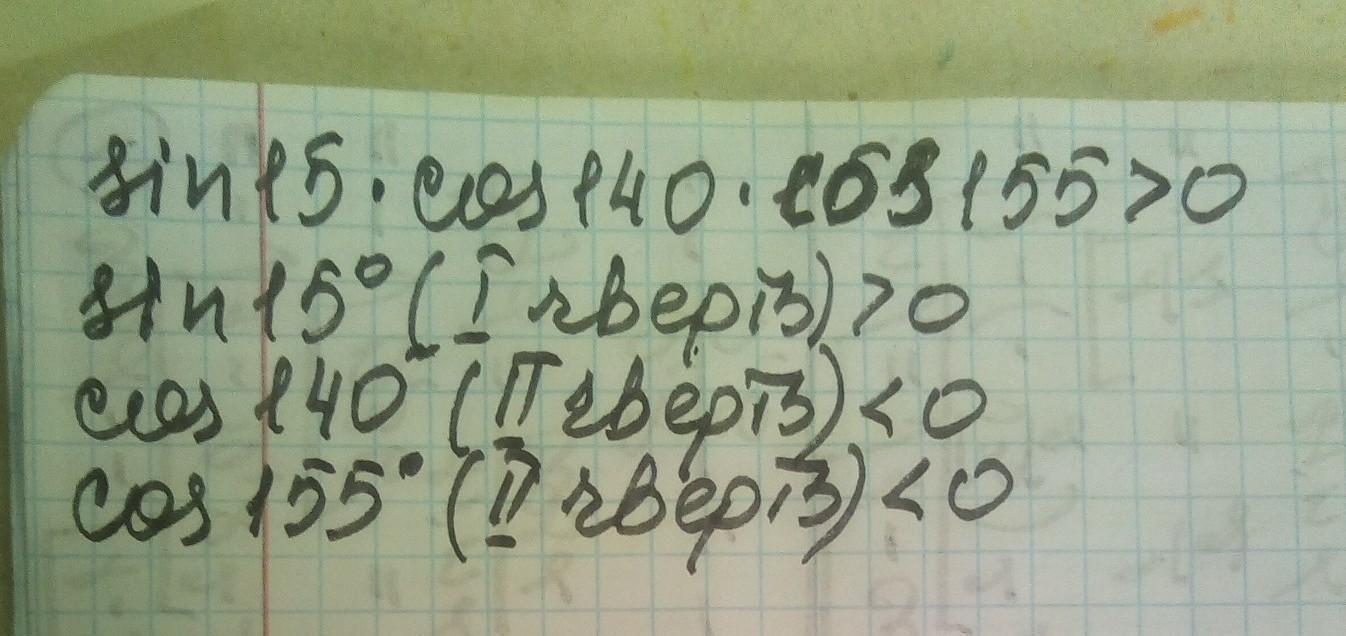 sin15·cos140·cos155>0
sin15°(I чверть)>0
cos140°(II чверть)<0
cos155°(II чверть)<0